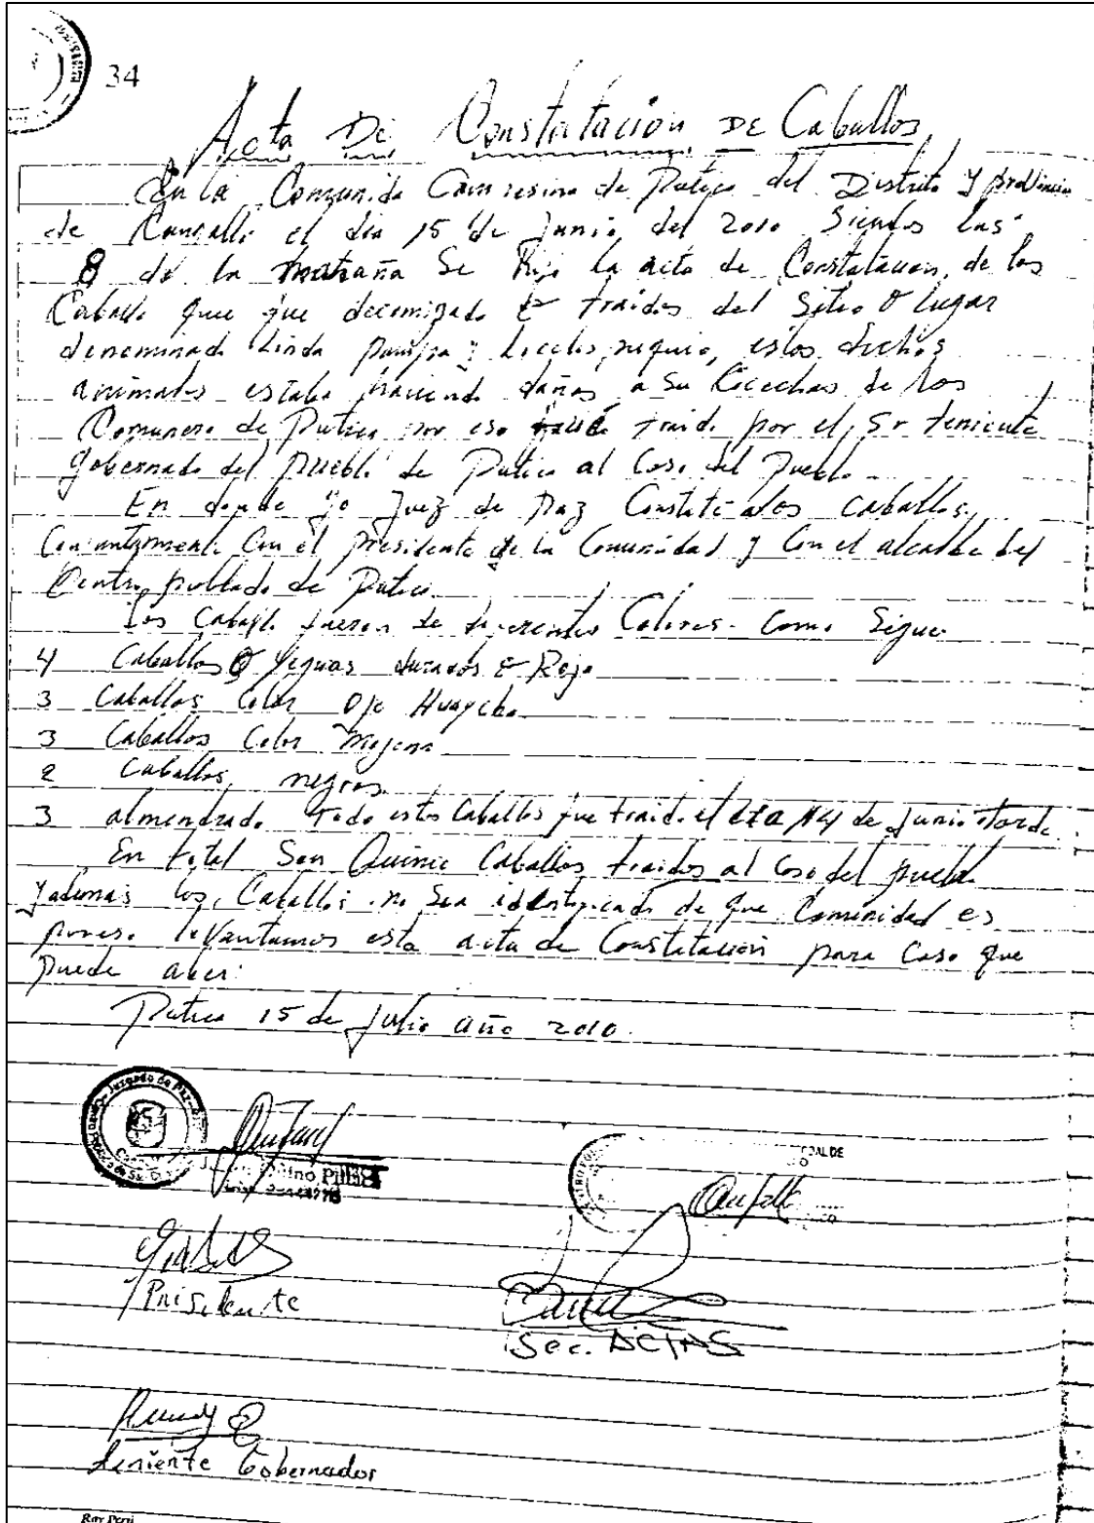 34
Acta De Constatación DE Caballos
En la Comunida Campesina de Putica del Distrito y provincia
de Cangallo el dia 15 de Junio del 2010 Siendos las
8 de la mañana Se hizo la acta de Constatacion, de los
Caballo que que decomizado traidos del Sitio O lugar
denominado Linda pampa y puquio, estos dichos
animales estaba haciendo daños a Su Cosechas de los
Comunero de Putica por eso fue traido por el Sr teniente
gobernado del pueblo de Putica al Coso del pueblo
En donde yo Juez de Paz Constate a los caballos,
Conjuntamente Con el presidente de la Comunidad y Con el alcalde del
Centro poblado de Putica
Los Caballo fueron de diferentes Colores. Como Sigue
4 Caballos O Yeguas durados Rojo
3 Caballos Color Oje Huaycho
3 Caballos Color Mojeno
2 Caballos negros
3 almendrado Todo estos Caballos fue traido el dia 14 de Junio tarde
En total Son Quince Caballos traidos al Coso del pueblo
Y ademas los Caballos no Sea identificado de que Comunidad es
por eso levantamos esta acta de Constatación para Caso que
puede aber.
Putica 15 de Julio año 2010.
Juzgado de Paz
Presidente
Sec. ACTAS
Teniente Gobernador
Ray Perú